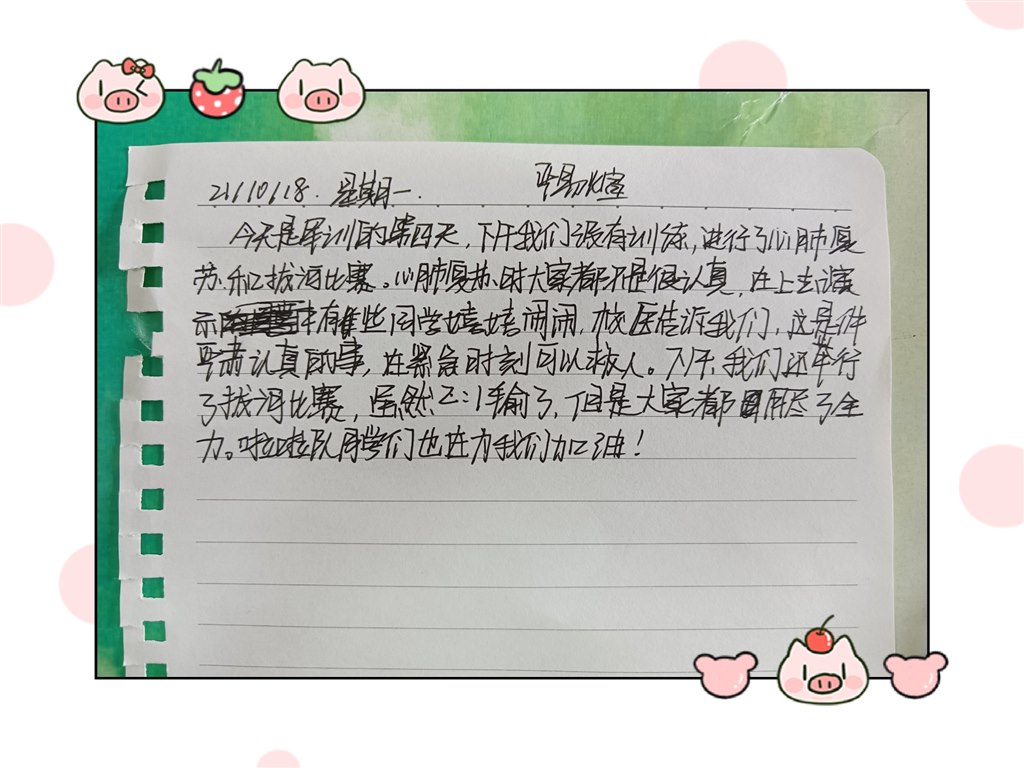 21/10/18. 星期一.
今天是军训的第四天,下午我们没有训练,进行了心肺复
苏和拔河比赛。心肺复苏时大家都不是很认真,在上去演
示时有些同学嘻嘻闹闹,校医告诉我们,这是件
严肃认真的事,在紧急时刻可以救人。下午,我们还举行
了拔河比赛,虽然2:1输了,但是大家都用尽了全
力。啦啦队同学们也在为我们加油!